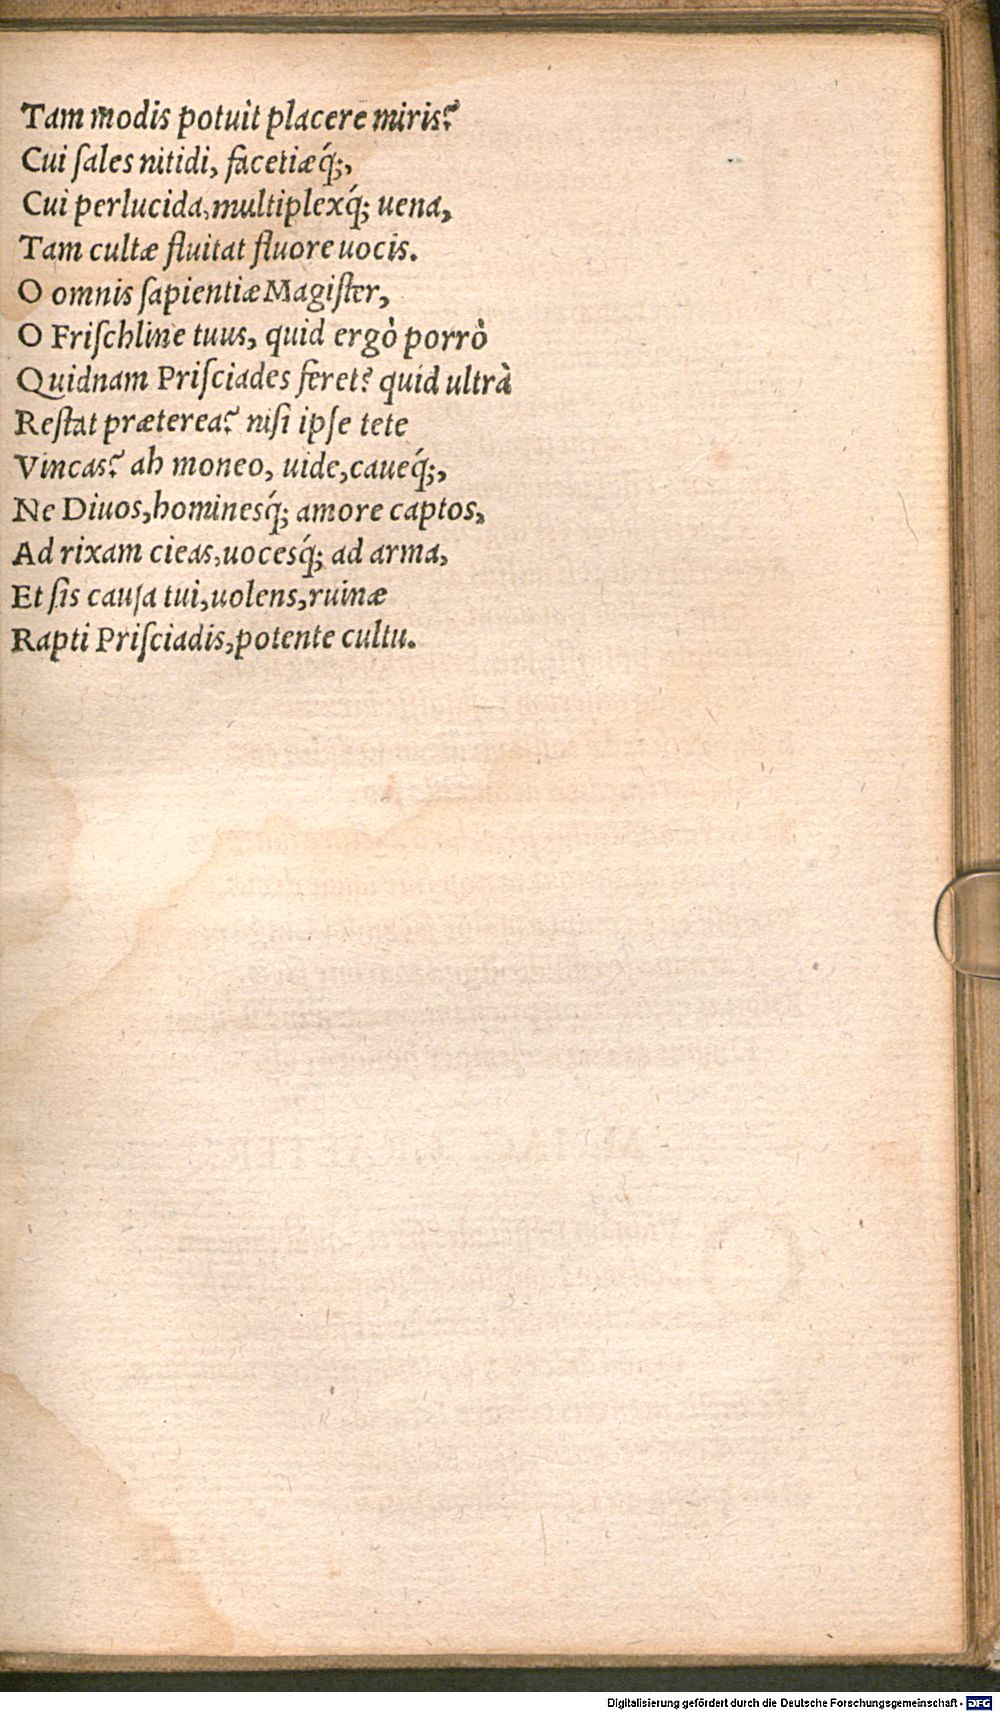 Tam modis potuit placere miris?
Cui ſales nitidi, facetiæq́;,
Cui perlucida, multiplexq́; uena,
Tam cultæ fluitat fluore uocis.
O omnis ſapientiæ Magiſter,
O Friſchline tuus, quid ergò porrò
Quidnam Priſciades feret? quid ultrà
Reſtat præterea? niſi ipſe tete
Vincas? ah moneo, uide, caueq́;,
Ne Diuos, hominesq́; amore captos,
Ad rixam cieas, uocesq́; ad arma,
Et ſis cauſa tui, uolens, ruinæ
Rapti Priſciadis, potente cultu.
Digitalisierung gefördert durch die Deutsche Forschungsgemeinschaft - DFG